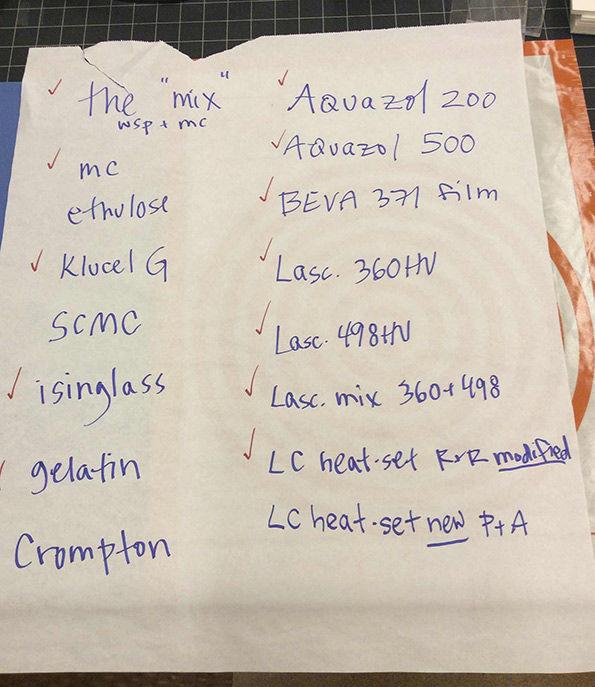 ✓ the "mix"
wsp + mc
✓ mc
ethulose
✓ Klucel G
SCMC
✓ isinglass
✓ gelatin
Crompton
✓ Aquazol 200
✓ Aquazol 500
✓ BEVA 371 film
✓ Lasc. 360HV
✓ Lasc. 498HV
✓ Lasc. mix 360+498
✓ LC heat-set R+R modified
LC heat-set new P+A